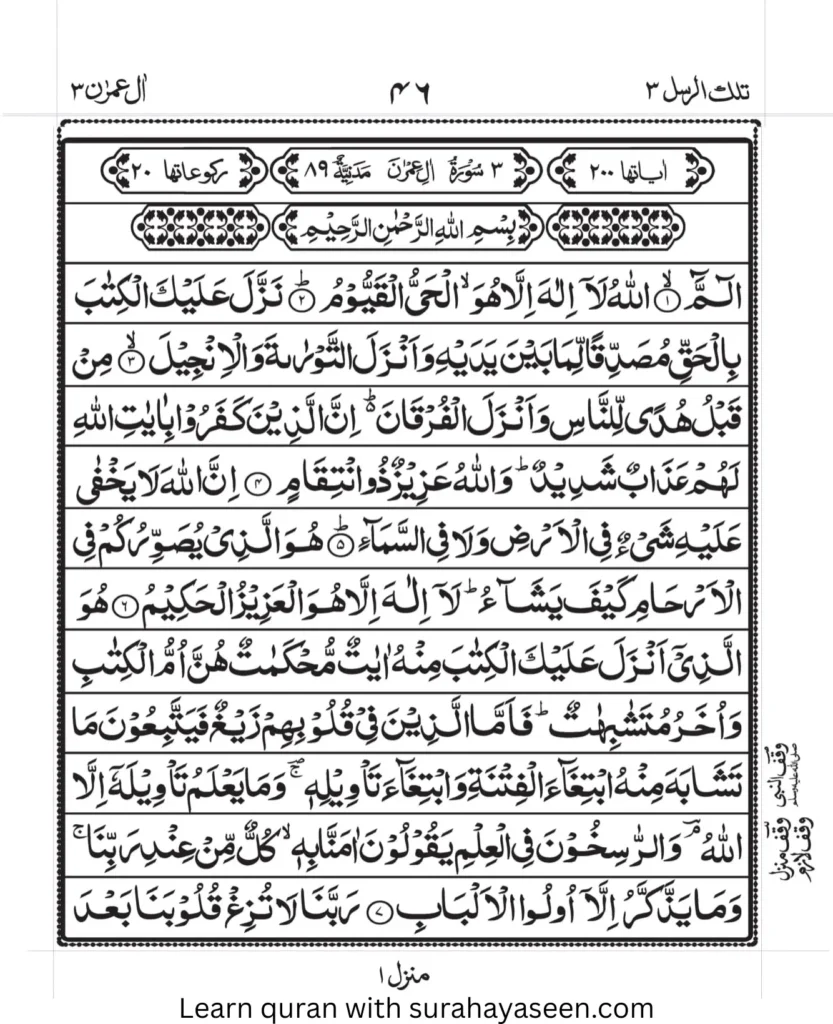 تلك الرسل ٣
٤٦
اٰل عمرٰن ٣
اٰیاتھا ٢٠٠
٣ سُوْرَةُ اٰلِ عِمْرٰنَ مَدَنِيَّةٌ ٨٩
رکوعاتھا ٢٠
بِسْمِ اللّٰهِ الرَّحْمٰنِ الرَّحِيْمِ
الٓـمّٓ ۙ‏﴿۱﴾ اللّٰهُ لَاۤ اِلٰهَ اِلَّا هُوَ ۙ الْحَیُّ الْقَیُّوْمُ ؕ‏﴿۲﴾ نَزَّلَ عَلَیْكَ الْكِتٰبَ
بِالْحَقِّ مُصَدِّقًا لِّمَا بَیْنَ یَدَیْهِ وَاَنْزَلَ التَّوْرٰىةَ وَالْاِنْجِیْلَ ۙ‏﴿۳﴾ مِنْ
قَبْلُ هُدًی لِّلنَّاسِ وَاَنْزَلَ الْفُرْقَانَ ۬ؕ اِنَّ الَّذِیْنَ كَفَرُوْا بِاٰیٰتِ اللّٰهِ
لَهُمْ عَذَابٌ شَدِیْدٌ ؕ وَاللّٰهُ عَزِیْزٌ ذُو انْتِقَامٍ ‏﴿۴﴾ اِنَّ اللّٰهَ لَا یَخْفٰی
عَلَیْهِ شَیْءٌ فِی الْاَرْضِ وَلَا فِی السَّمَآءِ ؕ‏﴿۵﴾ هُوَ الَّذِیْ یُصَوِّرُكُمْ فِی
الْاَرْحَامِ كَیْفَ یَشَآءُ ؕ لَاۤ اِلٰهَ اِلَّا هُوَ الْعَزِیْزُ الْحَكِیْمُ ‏﴿۶﴾ هُوَ
الَّذِیْۤ اَنْزَلَ عَلَیْكَ الْكِتٰبَ مِنْهُ اٰیٰتٌ مُّحْكَمٰتٌ هُنَّ اُمُّ الْكِتٰبِ
وَاُخَرُ مُتَشٰبِهٰتٌ ؕ فَاَمَّا الَّذِیْنَ فِیْ قُلُوْبِهِمْ زَیْغٌ فَیَتَّبِعُوْنَ مَا
تَشَابَهَ مِنْهُ ابْتِغَآءَ الْفِتْنَةِ وَابْتِغَآءَ تَاْوِیْلِهٖ ۚ وَمَا یَعْلَمُ تَاْوِیْلَهٗۤ اِلَّا
اللّٰهُ ۘ وَالرّٰسِخُوْنَ فِی الْعِلْمِ یَقُوْلُوْنَ اٰمَنَّا بِهٖ ۙ كُلٌّ مِّنْ عِنْدِ رَبِّنَا ۚ
وَمَا یَذَّكَّرُ اِلَّاۤ اُولُوا الْاَلْبَابِ ‏﴿۷﴾ رَبَّنَا لَا تُزِغْ قُلُوْبَنَا بَعْدَ
وقف النبی صلی اللہ علیہ وسلم
وقف منزل
وقف لازم
منزل ١
Learn quran with surahayaseen.com